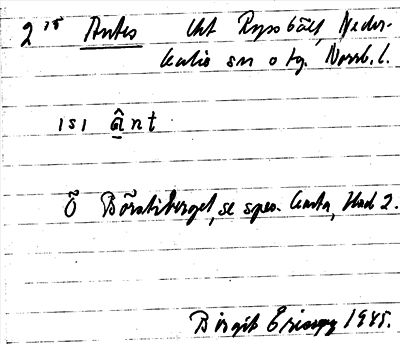 2 15 Antes Uht Rysobäck, Neder-
kalix sn o tg. Norrb. l.
ısı ânt
Ö Börstiberget, se spec. karta, blad 2.
Birgit 1945.